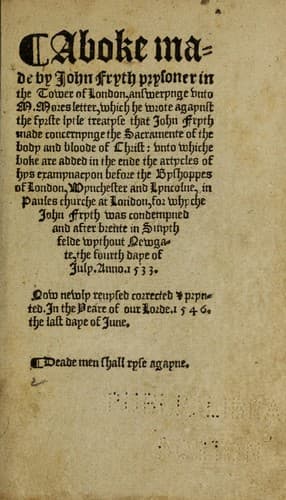 ¶A boke ma-
de by John Fryth prysoner in
the Tower of London, answerynge vnto
M. Mores letter, which he wrote agaynst
the fyrste lytle treatyse that John Fryth
made concernynge the Sacramente of the
body and bloode of Christ: vnto whiche
boke are added in the ende the artycles of
hys examynacyon before the Byshoppes
of London, Wynchester and Lyncolne, in
Paules churche at London, for whyche
John Fryth was condempned
and after brente in Smyth
felde wythout Newga-
te, the fourth daye of
July. Anno. 1533.
Now newly reuysed corrected & pryn-
ted. In the Yeare of our Lorde. 1546.
the last daye of June.
¶Deade men shall ryse agayne.